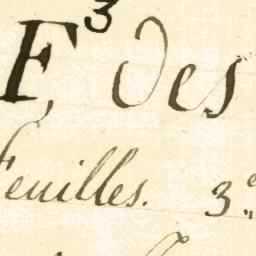 F³ des
Feuilles. 3.e